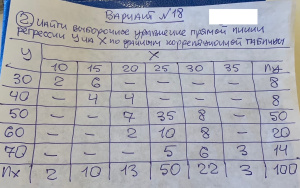 Вариант №18
② Найти выборочное уравнение прямой линии
регрессии Y на X по данным корреляционной таблицы
Y X
10 15 20 25 30 35 ny
30 2 6 – – – – 8
40 – 4 4 – – – 8
50 – – 7 35 8 – 50
60 – – 2 10 8 – 20
70 – – – 5 6 3 14
nx 2 10 13 50 22 3 100